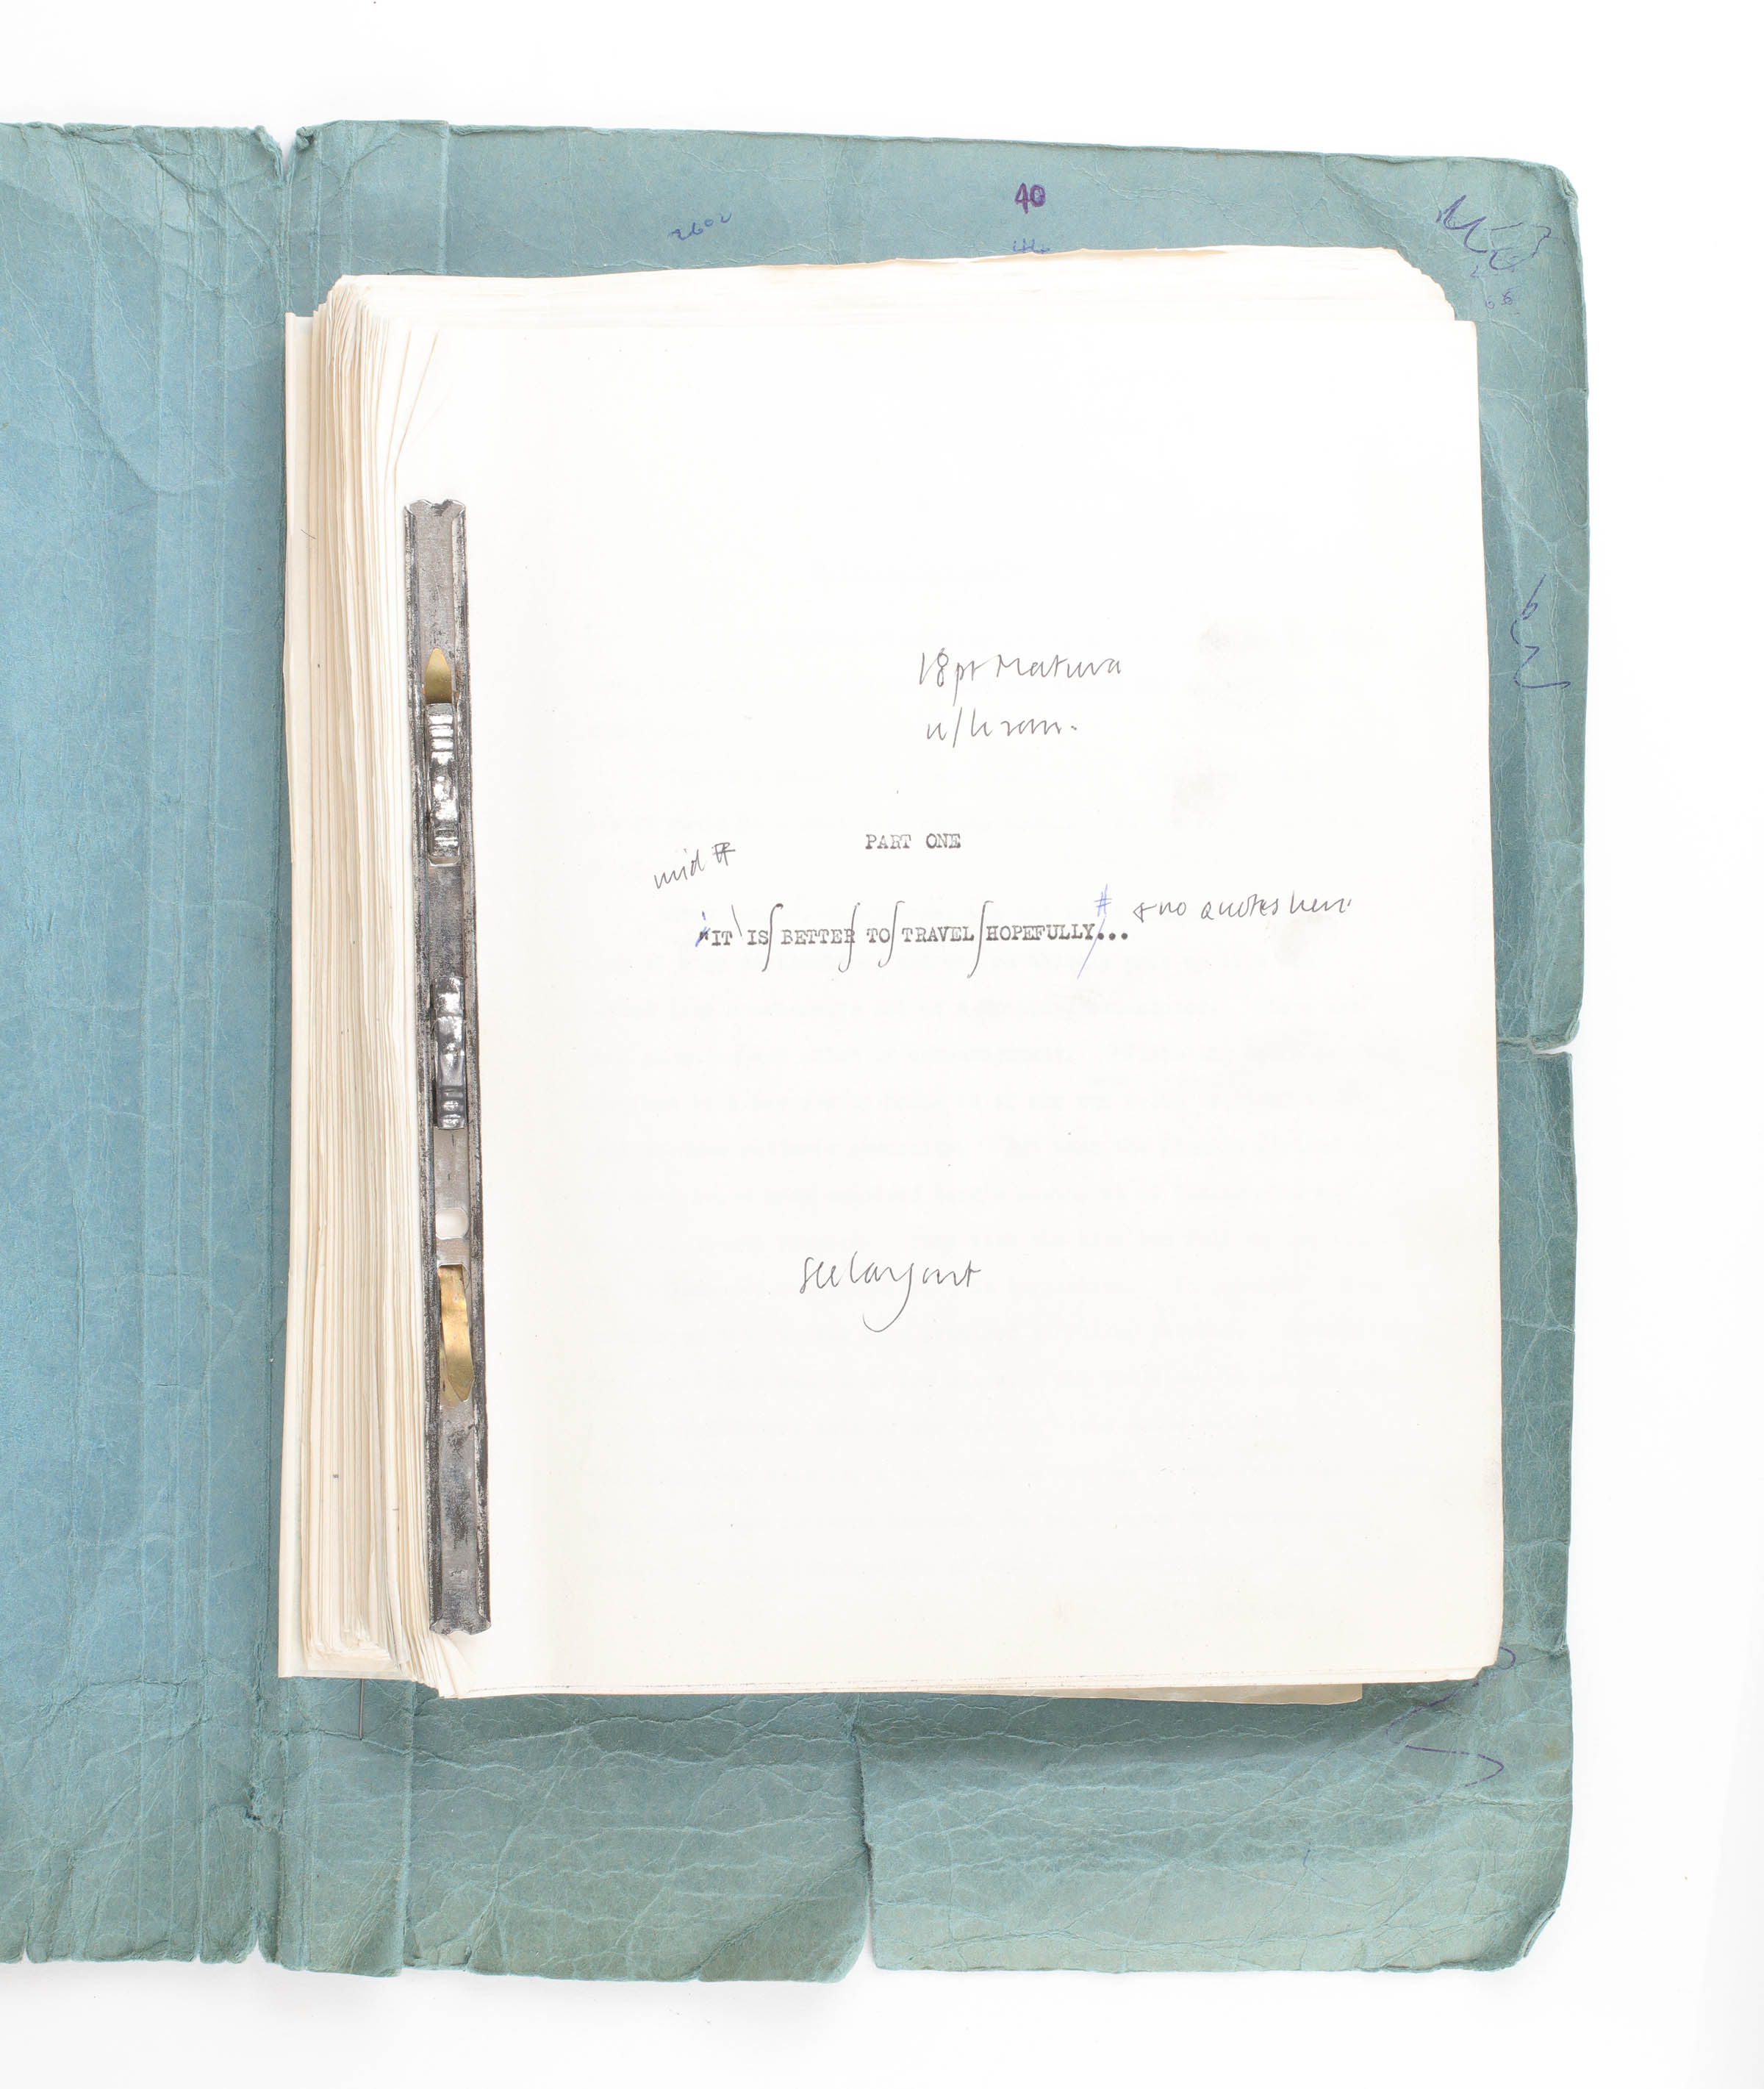 40
18pt Matura
u/lc rom.
PART ONE
mid #
"IT IS BETTER TO TRAVEL HOPEFULLY...
# & no quotes here
see layout